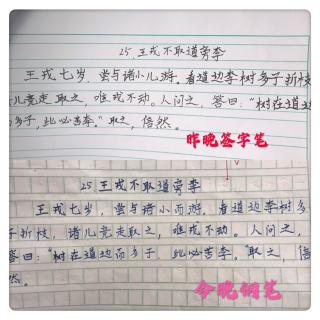 25.王戎不取道旁李
王戎七岁,尝与诸小儿游。看道边李树多子折枝
儿竞走取之,唯戎不动。人问之,答曰:“树在道边
多子,此必苦李。”取之,信然。
昨晚签字笔
25王戎不取道旁李
王戎七岁,尝与诸小儿游,看道边李树多
子折枝,诸儿竞走取之,唯戎不动。人问之,
答曰:“树在道边而多子,此必苦李。”取之,信
然。
今晚钢笔